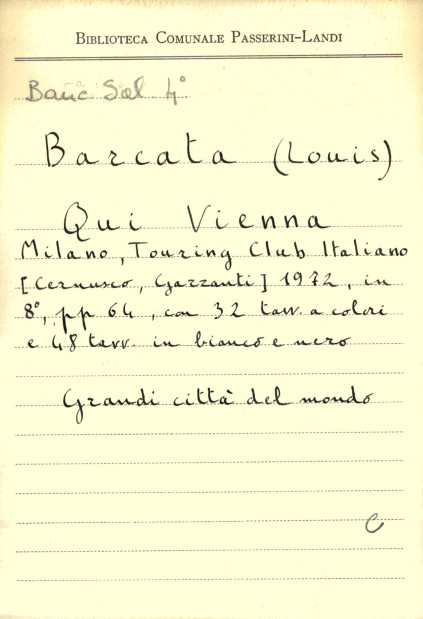 BIBLIOTECA COMUNALE PASSERINI-LANDI
Banc Sal 4°
Barcata (Louis)
Qui Vienna
Milano, Touring Club Italiano
[Cernusco, Garzanti] 1972, in
8°, pp 64, con 32 tavv. a colori
e 48 tavv. in bianco e nero
Grandi città del mondo
C